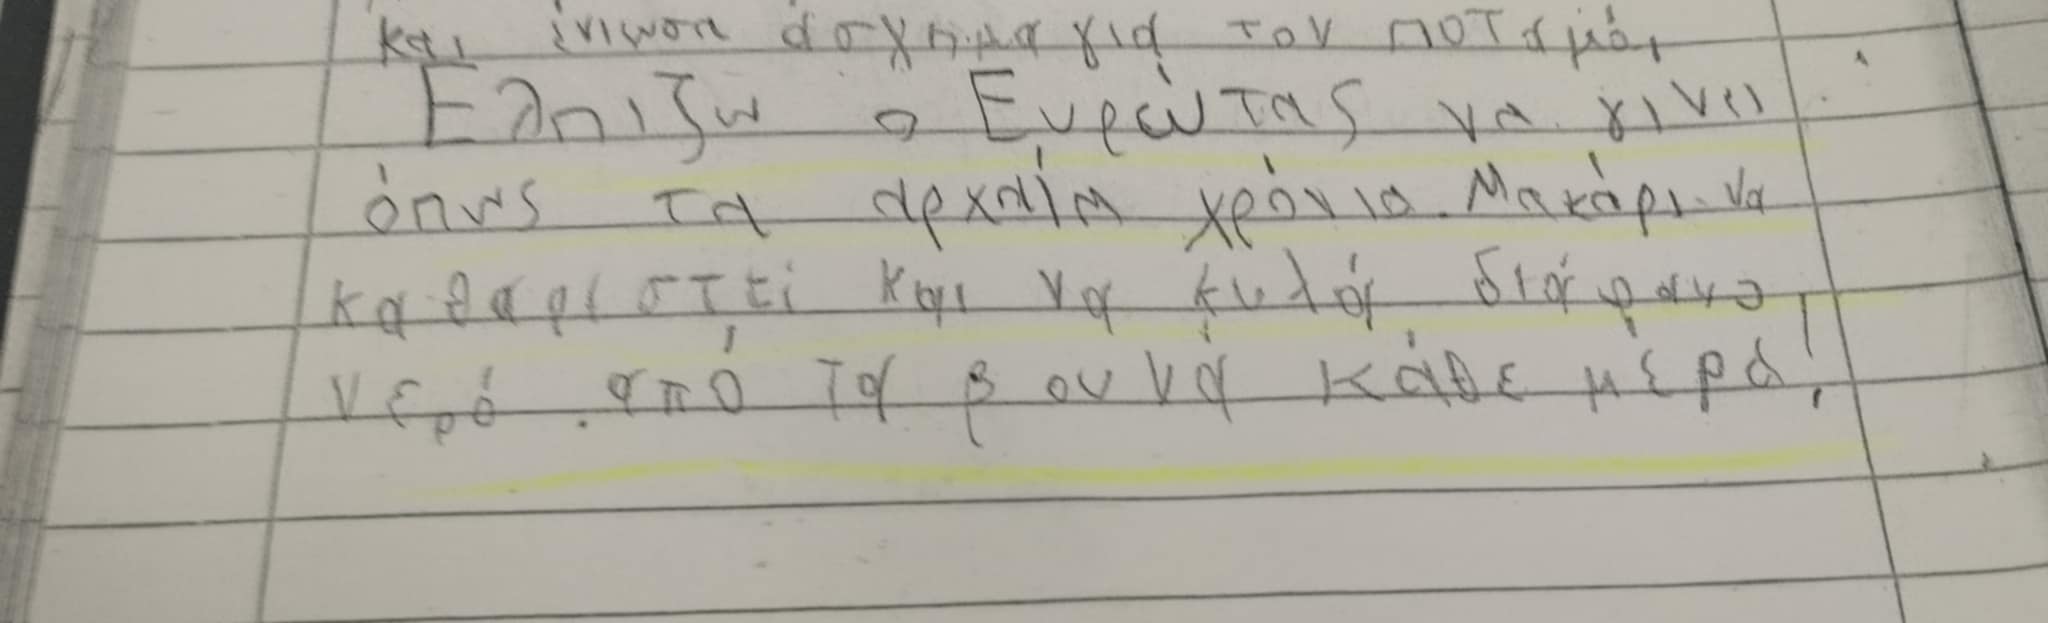 και ένιωσα άσχημα για τον ποταμό,
Ελπιζω ο Ευρώτας να γινει
όπως τα αρχαία χρόνια. Μακάρι να
καθαριστεί και να κυλάει διάφανο
νερό από τα βουνά κάθε μέρα!